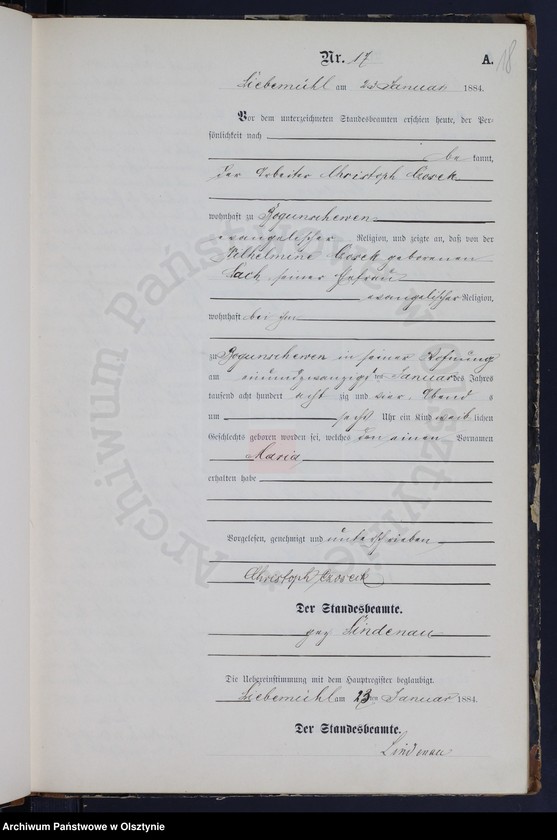 Nr. 17
A. 18
Liebemühl am Januar 1884.
Vor dem unterzeichneten Standesbeamten erschien heute, der Per-
sönlichkeit nach
be kannt,
der Arbeiter Christoph
wohnhaft zu Bogunschewen
evangelischer Religion, und zeigte an, daß von der
Wilhelmine geborenen
Sack, seiner Ehefrau
evangelischer Religion,
wohnhaft bei ihm
zu Bogunschewen in seiner Wohnung
am einundzwanzigsten Januar des Jahres
tausend acht hundert acht zig und vier Abend s
um sechs Uhr ein Kind weib lichen
Geschlechts geboren worden sei, welches den einen Vornamen
Maria
erhalten habe
Vorgelesen, genehmigt und unterschrieben
Christoph
Der Standesbeamte.
gez Lindenau
Die Uebereinstimmung mit dem Hauptregister beglaubigt.
Liebemühl am 23ten Januar 1884.
Der Standesbeamte.
Lindenau
Archiwum Państwowe w Olsztynie
Archiwum Państwowe w Olsztynie